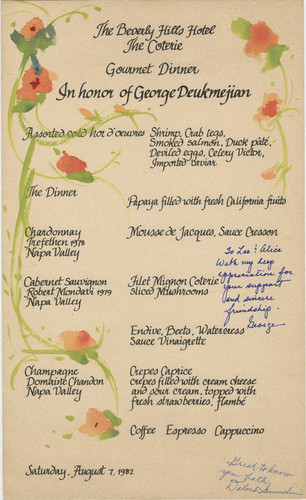 The Beverly Hills Hotel
The Coterie
Gourmet Dinner
In honor of George Deukmejian
Assorted cold hor d'oeuvres Shrimp, Crab legs,
Smoked salmon, Duck pâté,
Deviled eggs, Celery Victor,
Imported Caviar
The Dinner
Papaya filled with fresh California fruits
Chardonnay
Trefethen 1978
Napa Valley
Mousse de Jacques, Sauce Cresson
To Leo & Alice
With my deep
appreciation for
your support
and sincere
friendship.
George
Cabernet Sauvignon
Robert Mondavi 1979
Napa Valley
Filet Mignon Coterie
Sliced Mushrooms
Endive, Beets, Watercress
Sauce Vinaigrette
Champagne
Domaine Chandon
Napa Valley
Crepes Caprice
Crepes filled with cream cheese
and sour cream, topped with
fresh strawberries, flambé
Coffee Espresso Cappuccino
Saturday, August 7, 1982
Great to know
you both